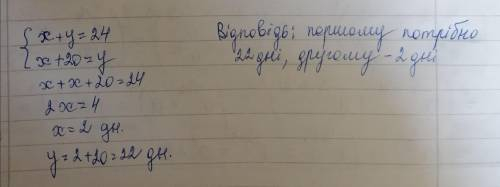 { x+y=24
x+20=y
x+x+20=24
2x=4
x=2 дн.
y=2+20=22 дн.
Відповідь: поршому потрібно
22 дні, другому - 2 дні